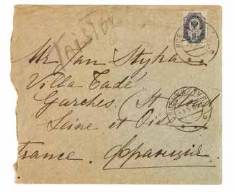 Tolstoy
M. Jan Styka
Villa Tadé
Garches, (St Cloud
Seine et Oise)
France. Франція.